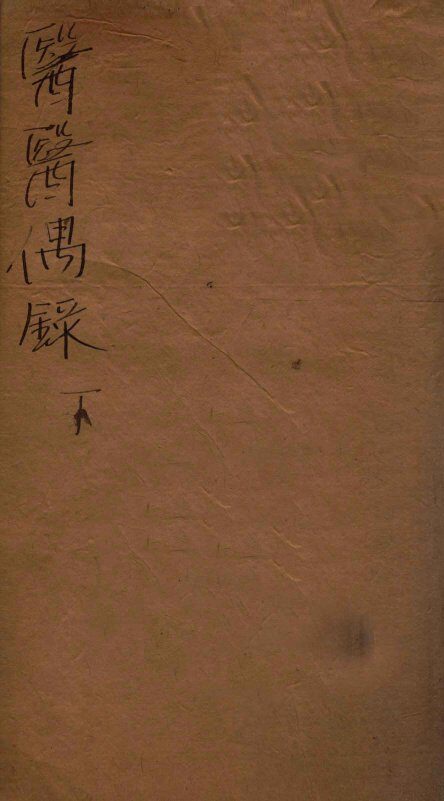 醫醫偶錄
下